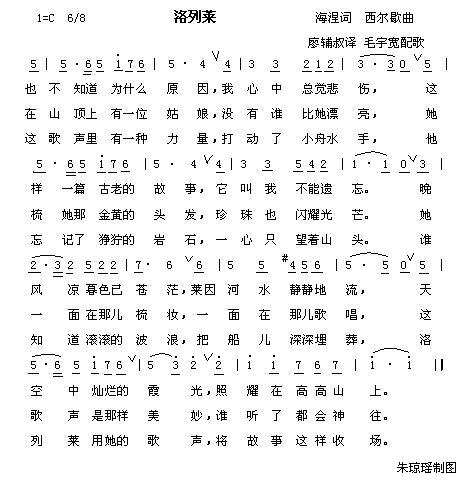 洛列莱
1=C 6/8 海涅词 西尔歇曲
廖辅叔译 毛宇宽配歌
5 | 5 · 6 5 i 7 6 | 5 · 4 ∨ 4 | 3 3 2 1 2 | 3 · 3 0 ∨ 5 |
也 不 知道 为什么 原 因，我 心 中 总觉悲 伤， 这
在 山 顶上 有一位 姑 娘，没 有 谁 比她漂 亮， 她
这 歌 声里 有一种 力 量，打 动 了 小舟水 手， 他
5 · 6 5 i 7 6 | 5 · 4 ∨ 4 | 3 3 5 4 2 | 1 · 1 0 ∨ 3 |
样 一篇 古老的 故 事，它 叫 我 不能遗 忘。 晚
梳 她那 金黄的 头 发，珍 珠 也 闪耀光 芒。 她
忘 记了 狰狞的 岩 石，一 心 只 望着山 头。 谁
2 · 3 2 5 2 2 | 7 · 6 ∨ 6 | 5 5 #4 5 6 | 5 · 5 0 ∨ 5 |
风 凉 暮色已 苍 茫，莱因 河 水 静静地 流， 天
一 面 在那儿 梳 妆，一 面 在 那儿歌 唱， 这
知 道 滚滚的 波 浪，把 船 儿 深深埋 葬， 洛
5 · 6 5 i 7 6 | 5 3 · 2 ∨ 2 | 1 1 7 6 7 | i · i ‖
空 中 灿烂的 霞 光，照 耀 在 高高山 上。
歌 声 是那样 美 妙，谁 听 了 都会神 往。
列 莱 用她的 歌 声，将 故 事 这样收 场。
朱琼瑶制图